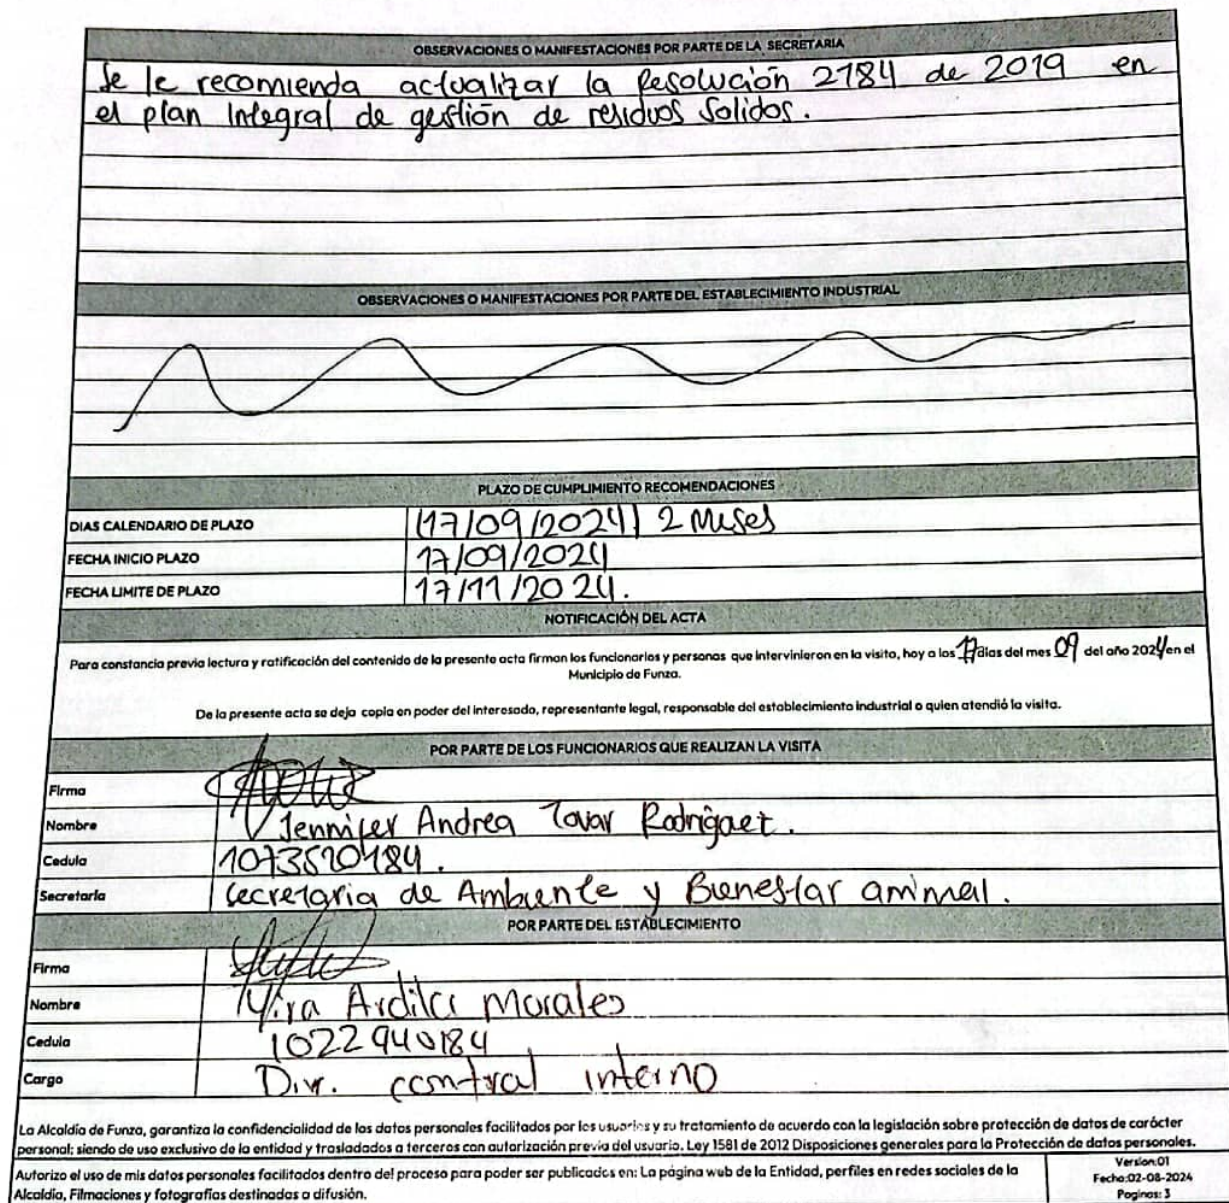 OBSERVACIONES O MANIFESTACIONES POR PARTE DE LA SECRETARIA
Se le recomienda actualizar la Resolución 2184 de 2019 en
el plan Integral de gestión de residuos Solidos.
OBSERVACIONES O MANIFESTACIONES POR PARTE DEL ESTABLECIMIENTO INDUSTRIAL
PLAZO DE CUMPLIMIENTO RECOMENDACIONES
DIAS CALENDARIO DE PLAZO (17/09/2024) 2 Meses
FECHA INICIO PLAZO 17/09/2024
FECHA LIMITE DE PLAZO 17/11/2024.
NOTIFICACIÓN DEL ACTA
Para constancia previa lectura y ratificación del contenido de la presente acta firman los funcionarios y personas que intervinieron en la visita, hoy a los 17 dias del mes 09 del año 2024 en el
Municipio de Funza.
De la presente acta se deja copia en poder del interesado, representante legal, responsable del establecimiento industrial o quien atendió la visita.
POR PARTE DE LOS FUNCIONARIOS QUE REALIZAN LA VISITA
Firma
Nombre Jennifer Andrea Tovar Rodriguez.
Cedula 1073520184.
Secretaría Secretaria de Ambiente y Bienestar animal.
POR PARTE DEL ESTABLECIMIENTO
Firma
Nombre Yira Ardila Morales
Cedula 1022940184
Cargo Dir. control interno
La Alcaldía de Funza, garantiza la confidencialidad de los datos personales facilitados por los usuarios y su tratamiento de acuerdo con la legislación sobre protección de datos de carácter
personal; siendo de uso exclusivo de la entidad y trasladados a terceros con autorización previa del usuario. Ley 1581 de 2012 Disposiciones generales para la Protección de datos personales.
Autorizo el uso de mis datos personales facilitados dentro del proceso para poder ser publicados en: La página web de la Entidad, perfiles en redes sociales de la
Alcaldía, Filmaciones y fotografías destinadas a difusión.
Version:01
Fecha:02-08-2024
Paginas: 3